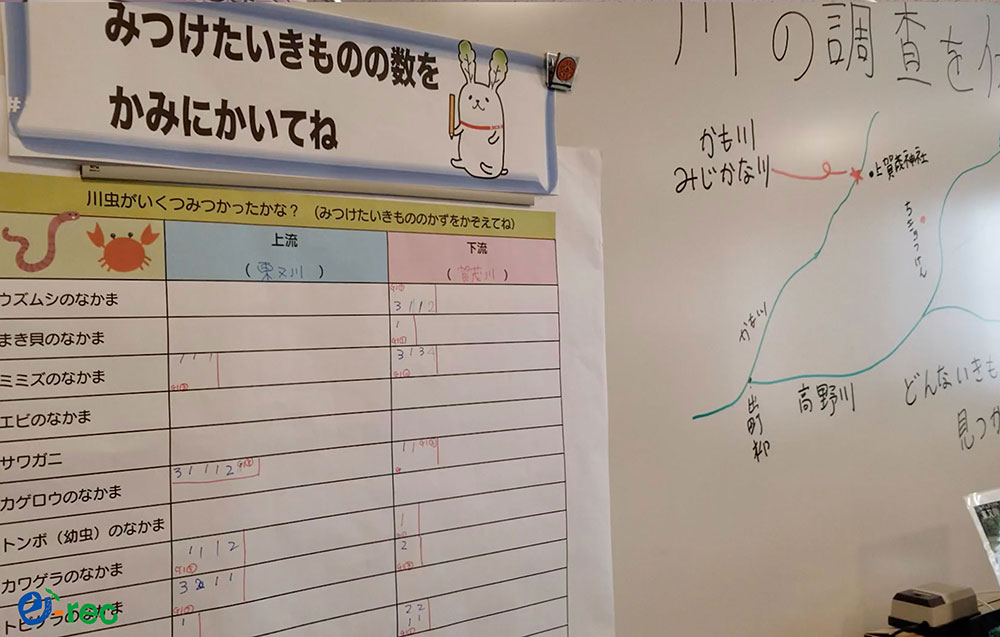 みつけたいきものの数を
かみにかいてね
川虫がいくつみつかったかな？（みつけたいきもののかずをかぞえてね）
上流
下流
（賀茂川）
ウズムシのなかま
3 1 1 2
まき貝のなかま
1
ミミズのなかま
1 1 1
3 1 3 4
エビのなかま
サワガニ
3 1 1 1 2
1 1
カゲロウのなかま
トンボ（幼虫）のなかま
1 1 1 2
1
2
カワゲラのなかま
トビケラのなかま
1
2 2
1 1
川の調査を
かも川
みじかな川
上賀茂神社
かも川
高野川
出町柳
どんないきも
見つか
e-rec